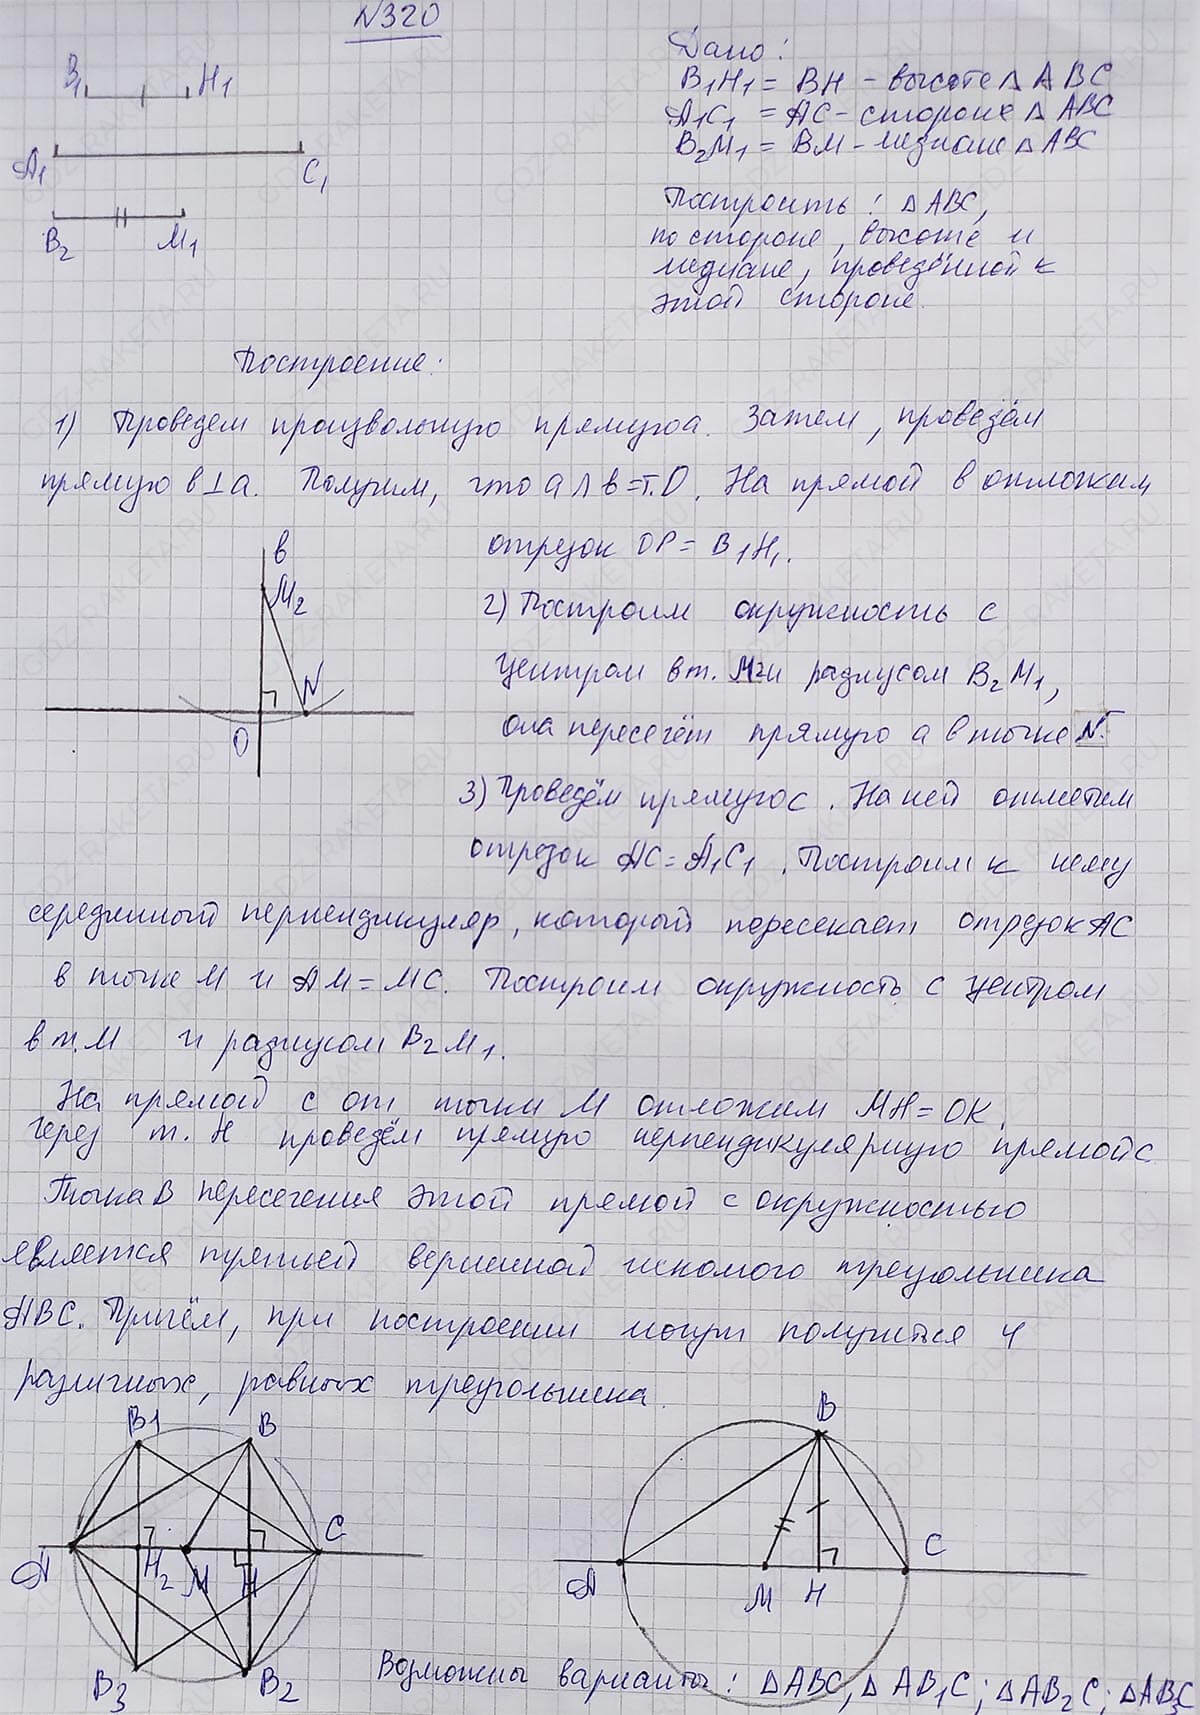 N320
B1 H1
A1 C1
B2 M1
Дано:
B1H1 = BH - высоте △ ABC
A1C1 = AC - стороне △ ABC
B2M1 = BM - медиане △ ABC
Построить: △ABC,
по стороне, высоте и
медиане, проведённой к
этой стороне.
Построение:
1) Проведем произвольную прямую a. Затем, проведём
прямую в⊥a. Получим, что a∩в=т.O. На прямой в отложим
отрезок OP = B1H1.
2) Построим окружность с
центром в т. M2 и радиусом B2M1,
она пересечёт прямую a в точке N.
в
M2
N
O
3) Проведём прямую c. На ней отметим
отрезок AC = A1C1. Построим к нему
серединный перпендикуляр, который пересекает отрезок AC
в точке M и AM = MC. Построим окружность с центром
в т.M и радиусом B2M1.
На прямой c от точки M отложим MH = OK.
Через т. H проведём прямую перпендикулярную прямой c
Точка B пересечения этой прямой с окружностью
является третьей вершиной искомого треугольника
ABC. Причём, при построении могут получится 4
различных, равных треугольника.
B1 B
A H2 M H C
B3 B2
B
A M H C
Возможны варианты: △ABC, △AB1C; △AB2C; △AB3C